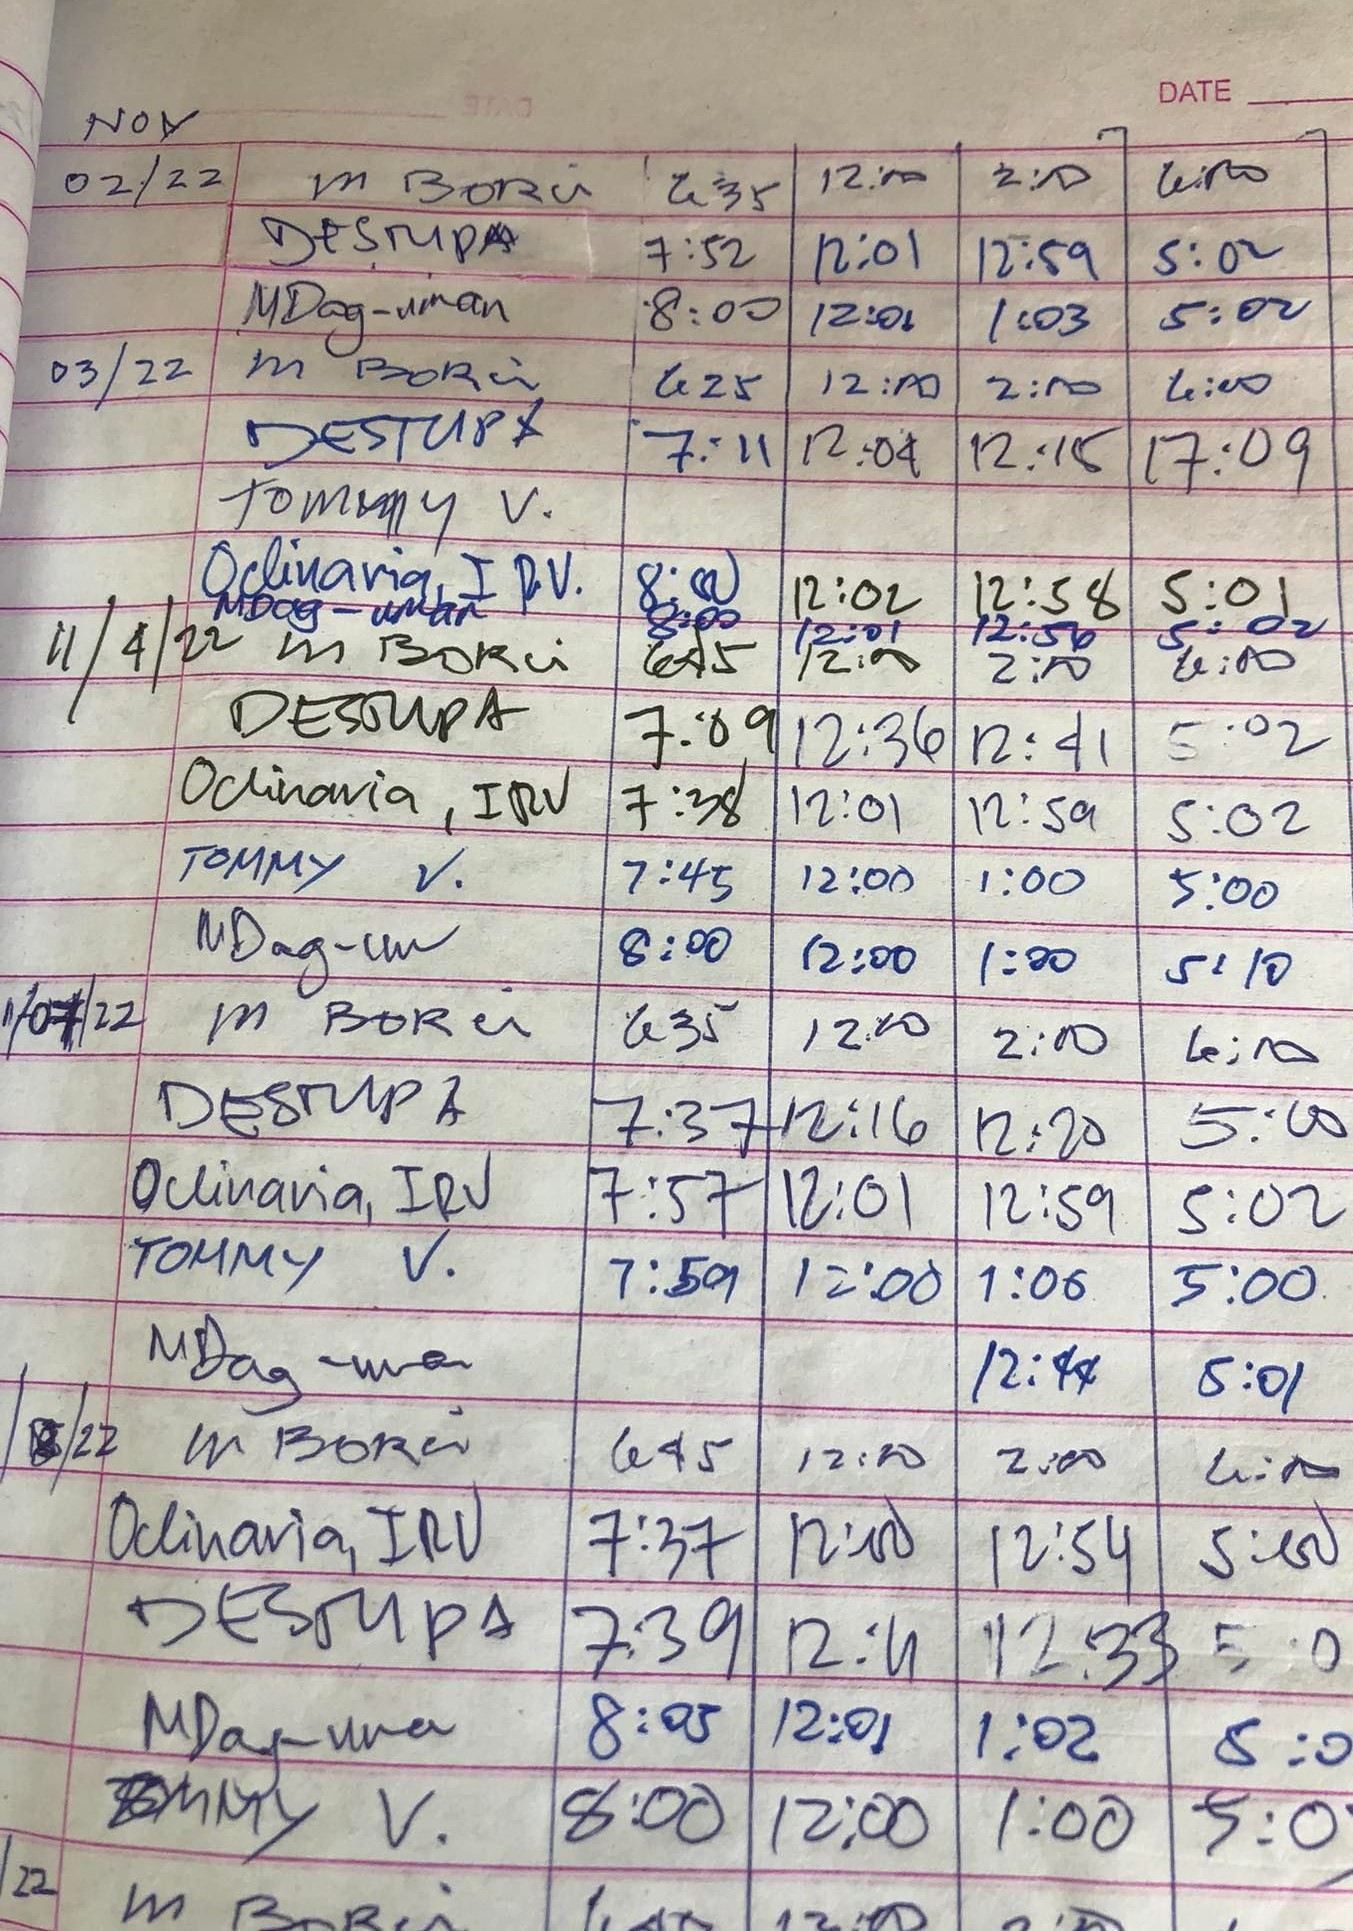 DATE
NOV
02/22 M BORCI 635 12:00 2:00 6:00
DESTUPA 7:52 12:01 12:59 5:02
MDag-uman 8:00 12:01 1:03 5:02
03/22 M BORCI 625 12:00 2:00 6:00
DESTUPA 7:11 12:04 12:15 17:09
TOMMY V.
Oclinaria, IRV. 8:00 12:02 12:58 5:01
MDag-uman 8:00 12:01 12:56 5:02
11/4/22 M BORCI 645 12:00 2:00 6:00
DESTUPA 7:09 12:36 12:41 5:02
Oclinaria, IRV 7:38 12:01 12:59 5:02
TOMMY V. 7:45 12:00 1:00 5:00
MDag-um 8:00 12:00 1:00 5:10
11/07/22 M BORCI 635 12:00 2:00 6:00
DESTUPA 7:37 12:16 12:20 5:00
Oclinaria, IRV 7:57 12:01 12:59 5:02
TOMMY V. 7:59 12:00 1:06 5:00
MDag-uman 12:44 5:01
/8/22 M BORCI 645 12:00 2:00 6:00
Oclinaria, IRV 7:37 12:00 12:54 5:00
DESTUPA 7:39 12:11 12:33 5:0
MDag-uma 8:05 12:01 1:02 5:0
TOMMY V. 8:00 12:00 1:00 5:0
/22 M BORCI